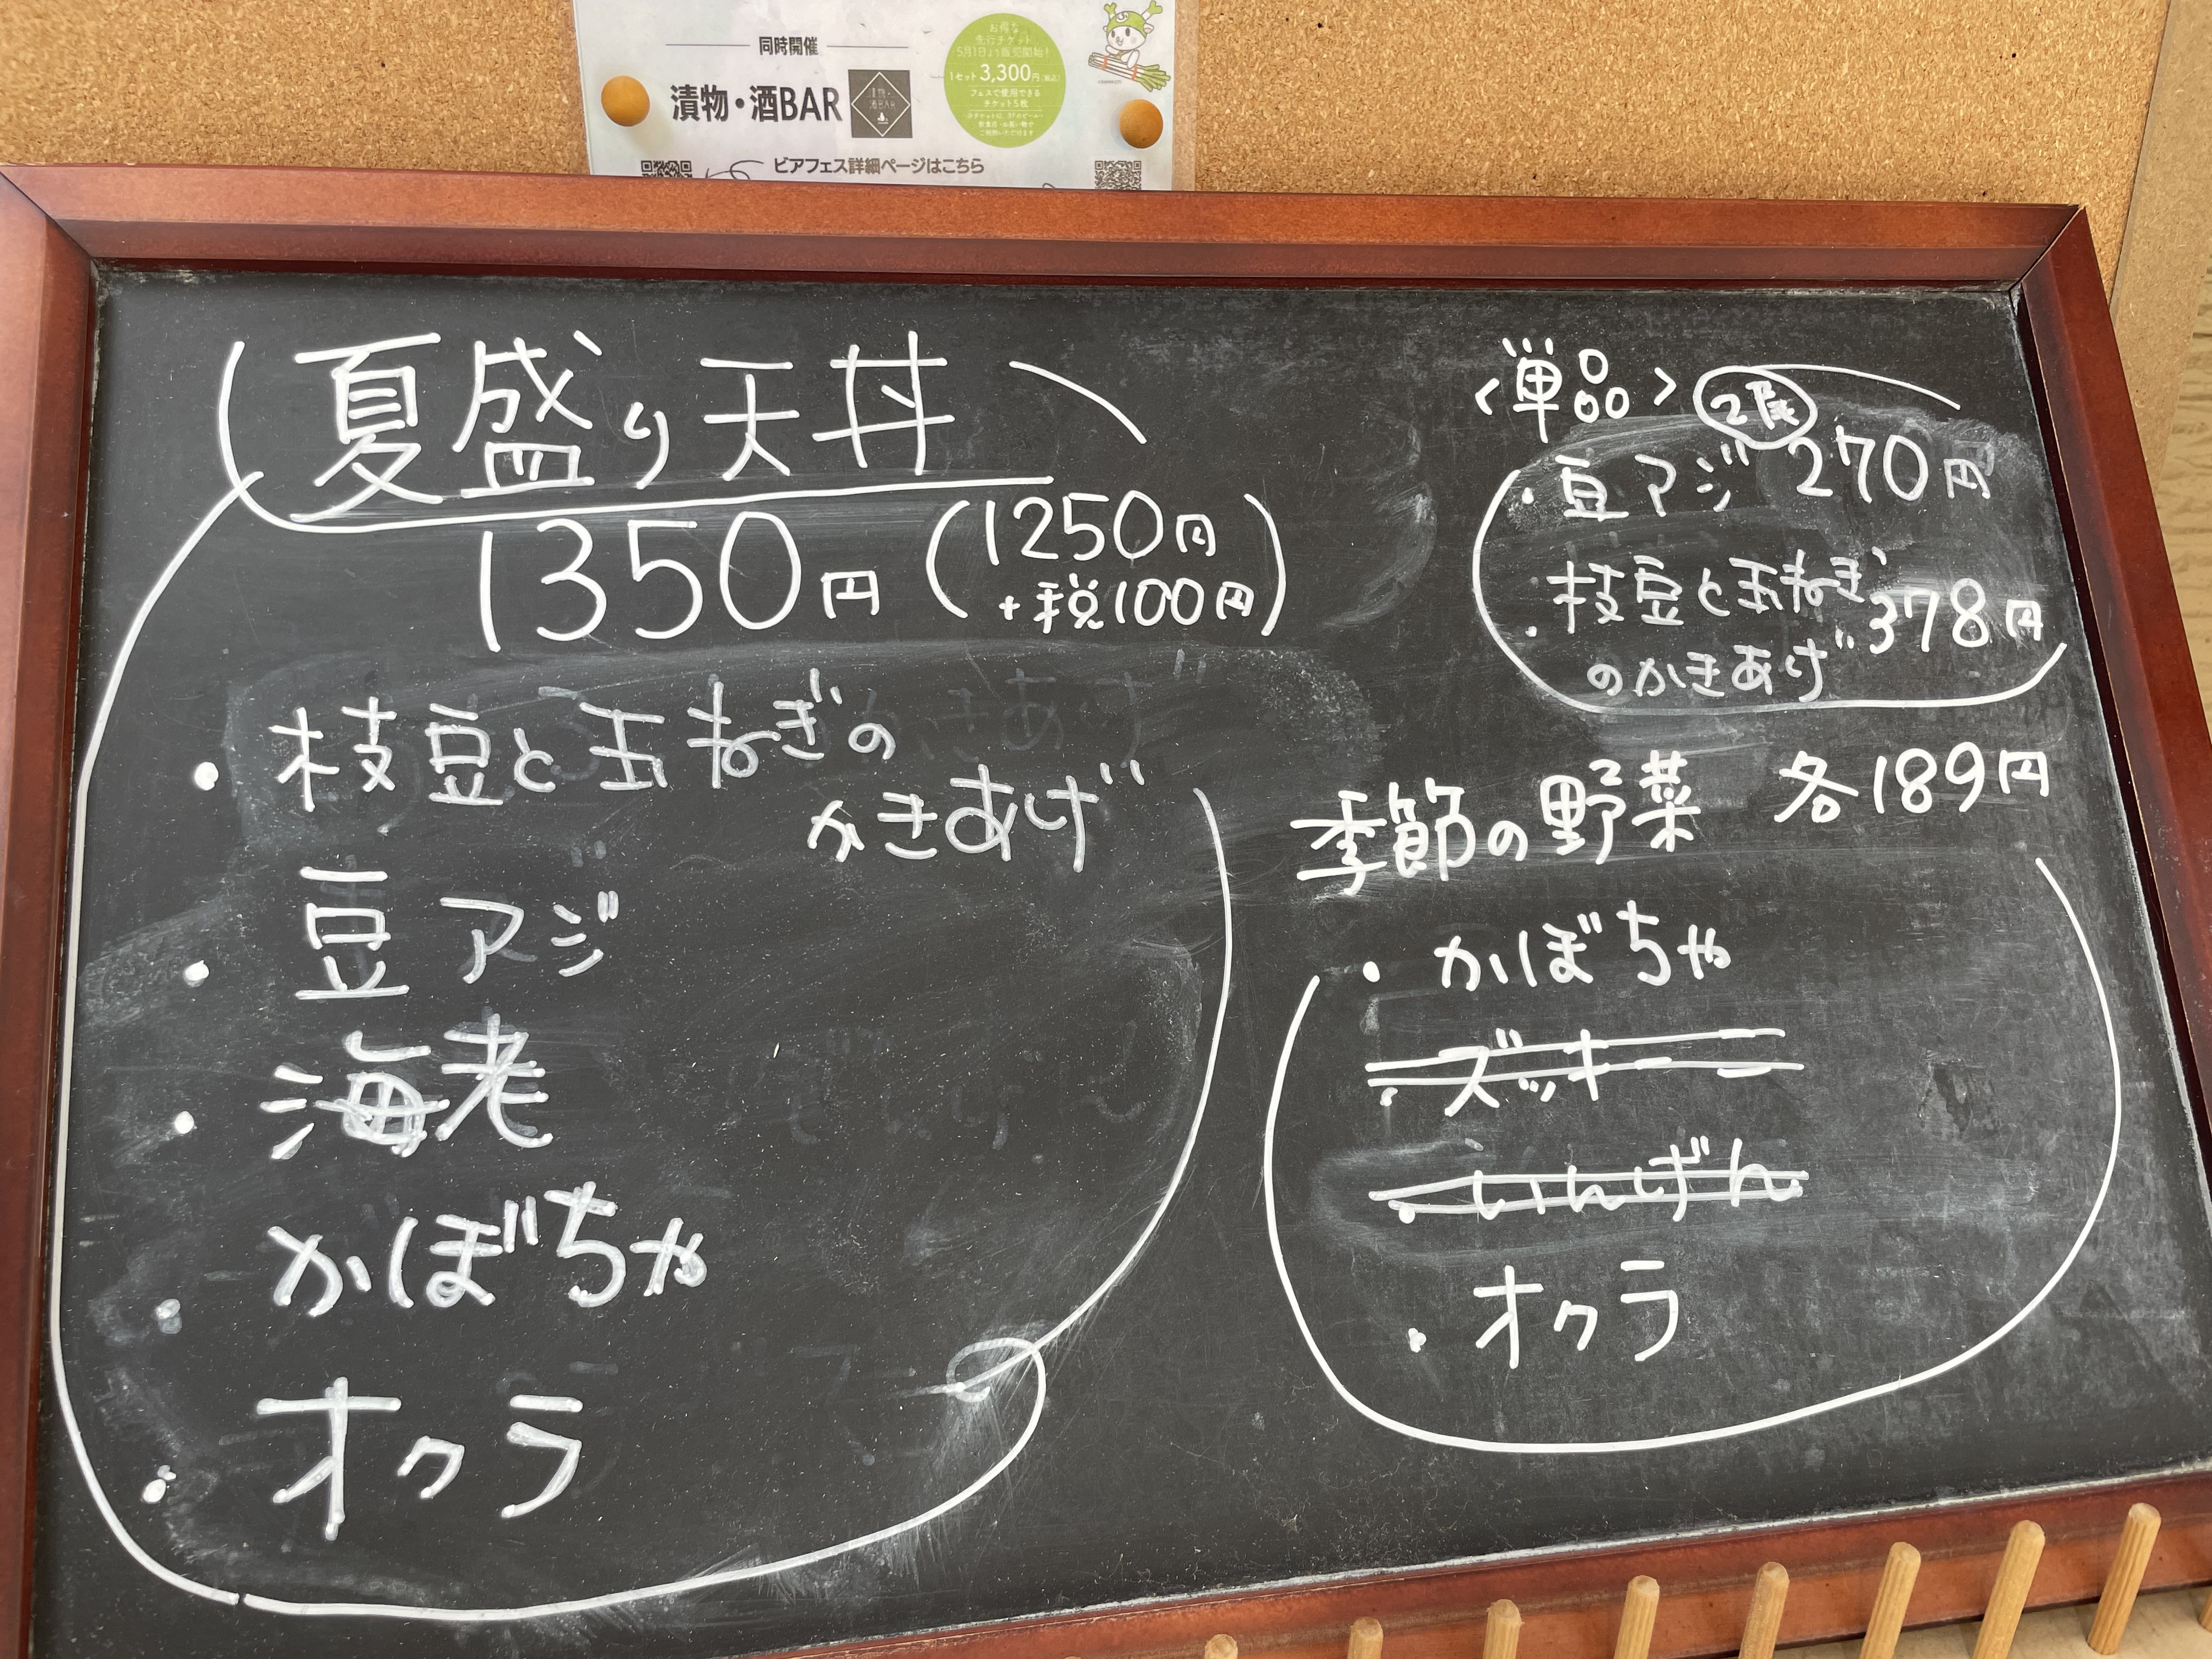 同時開催
漬物・酒BAR
お得な
先行チケット
5月1日より販売開始!
1セット3,300円(税込)
フェスで使用できる
チケット5枚
ビアフェス詳細ページはこちら
夏盛り天丼
1350円(1250円
+税100円)
・枝豆と玉ねぎの
かきあげ
・豆アジ
・海老
・かぼちゃ
・オクラ
<単品>
2尾
・豆アジ 270円
・枝豆と玉ねぎ
のかきあげ 378円
季節の野菜 各189円
・かぼちゃ
・ズッキー
・いんげん
・オクラ